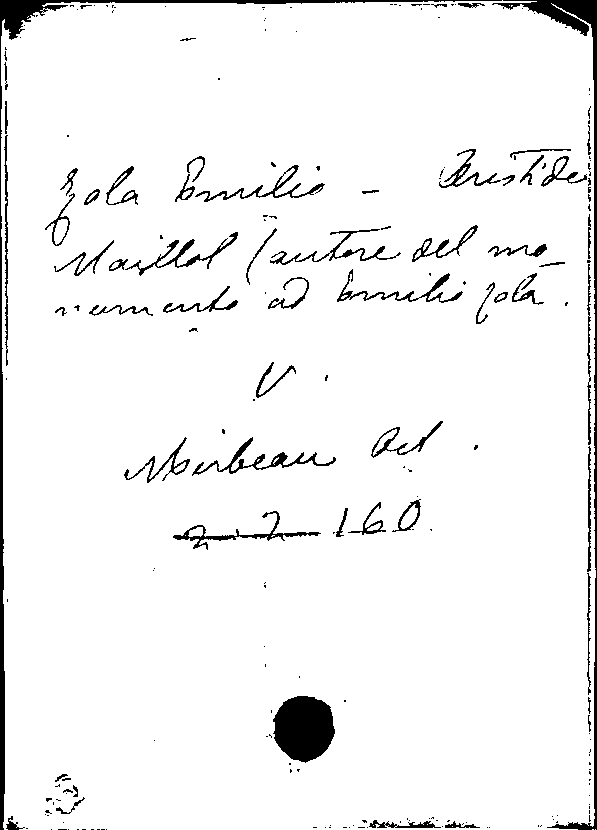 Zola Emilio - Aristide
Maillol (autore del mo-
numento ad Emilio Zola.
V.
Mirbeau Oct.
2. 2 160